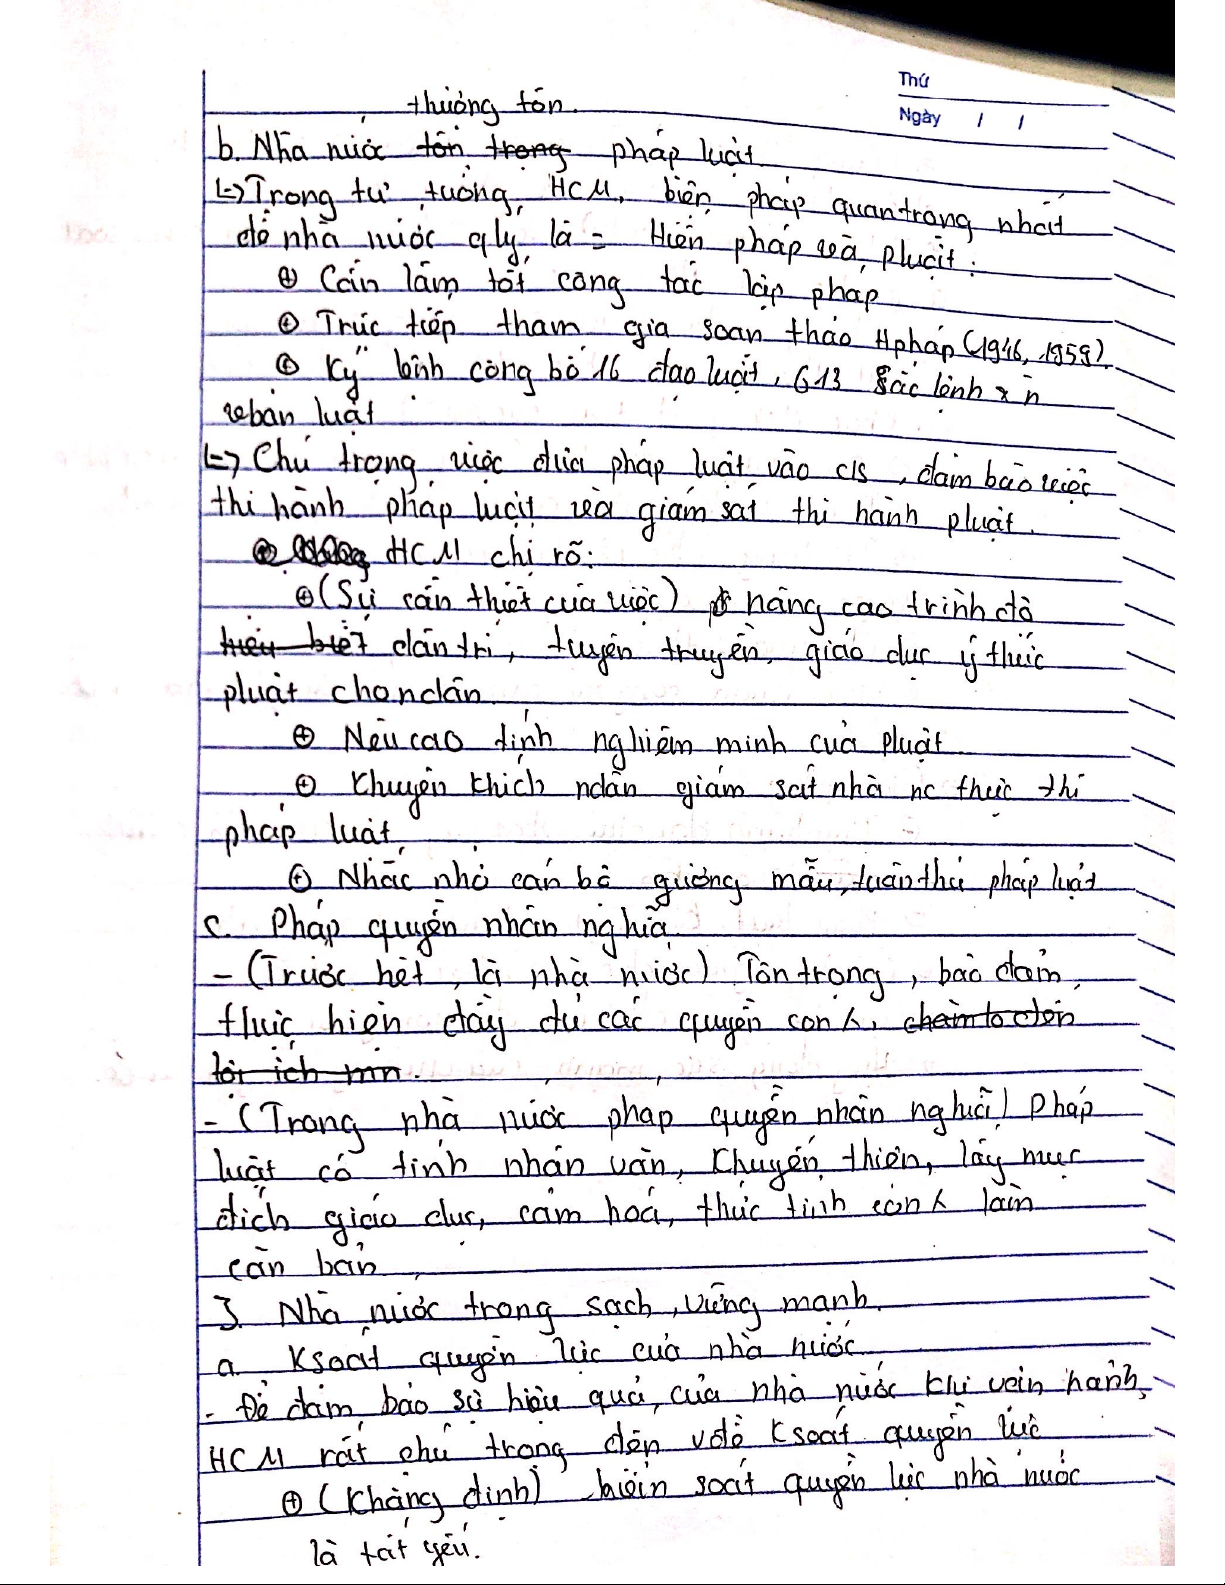 Thứ
Ngày / /
thượng tôn.
b. Nhà nước tôn trọng pháp luật
↳ Trong tư tưởng HCM, biện pháp quan trọng nhất
để nhà nước qlý là = Hiến pháp và pluật:
⊕ Cần làm tốt công tác lập pháp
⊕ Trực tiếp tham gia soạn thảo Hpháp (1946, 1959)
⊕ Ký lệnh công bố 16 đạo luật, 613 sắc lệnh & n
vbản luật
↳ Chú trọng việc đưa pháp luật vào c/s, đảm bảo việc
thi hành pháp luật và giám sát thi hành pluật.
HCM chỉ rõ:
⊕ (Sự cần thiết của việc) nâng cao trình độ
hiểu biết dân trí, tuyên truyền, giáo dục ý thức
pluật cho ndân.
⊕ Nêu cao tính nghiêm minh của pluật
⊕ Khuyến khích ndân giám sát nhà nc thực thi
pháp luật
⊕ Nhắc nhở cán bộ gương mẫu, tuân thủ pháp luật
c. Pháp quyền nhân nghĩa
- (Trước hết, là nhà nước) Tôn trọng, bảo đảm
thực hiện đầy đủ các quyền con ng, chăm lo đến
lợi ích mn.
- (Trong nhà nước pháp quyền nhân nghĩa) Pháp
luật có tính nhân văn, khuyến thiện, lấy mục
đích giáo dục, cảm hoá, thức tỉnh con ng làm
căn bản
3. Nhà nước trong sạch, vững mạnh.
a. Ksoát quyền lực của nhà nước
- Để đảm bảo sự hiệu quả của nhà nước khi vận hành,
HCM rất chú trọng đến vđề ksoát quyền lực
⊕ (Khẳng định) kiểm soát quyền lực nhà nước
là tất yếu.